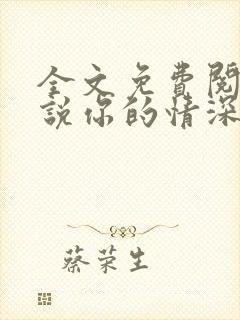 全文免費閱
說你的情深
蔡荣生